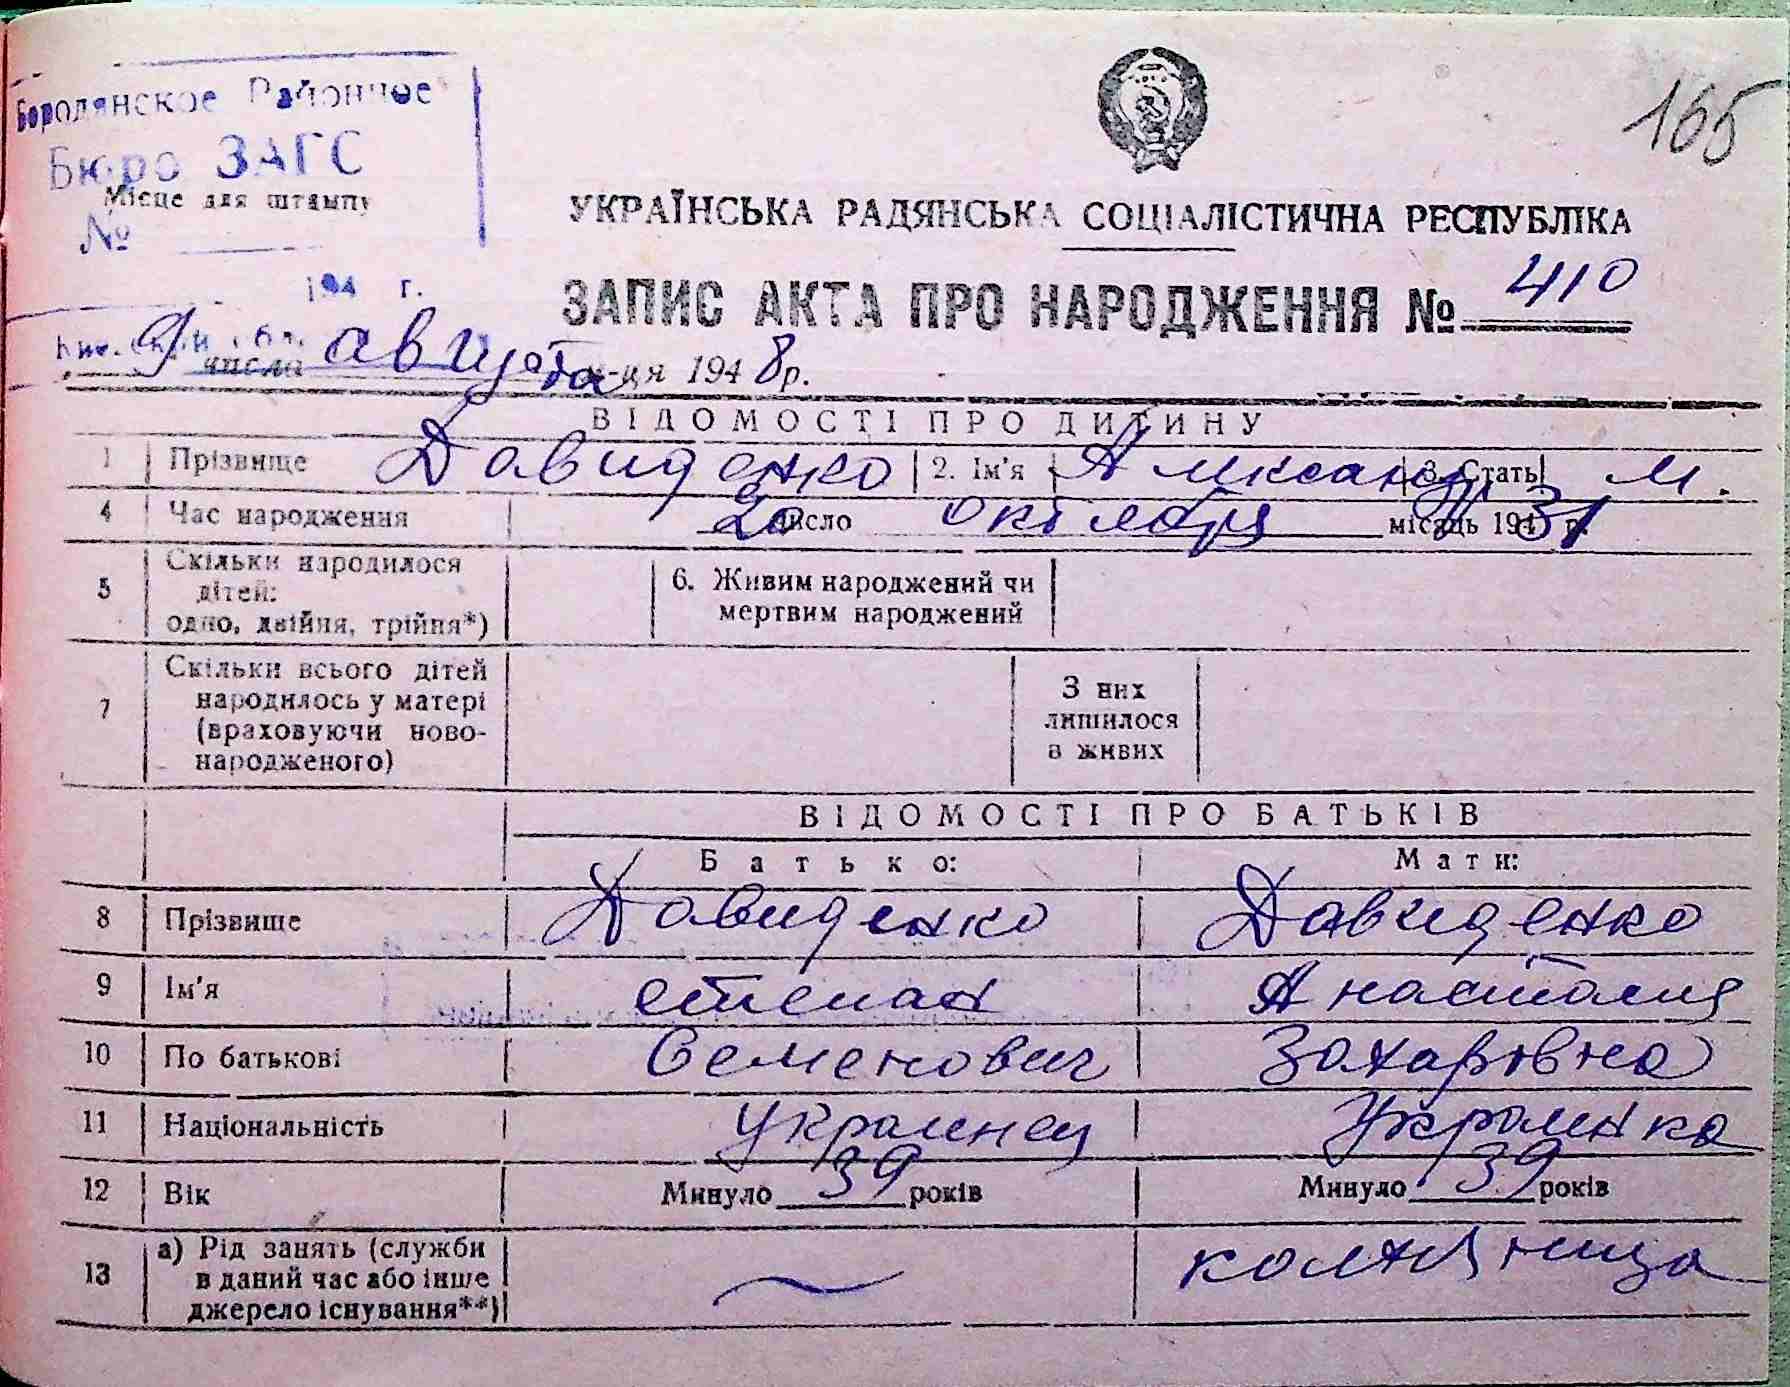 165
Бородянское Районное
Бюро ЗАГС
Місце для штампу
№
194 г.
УКРАЇНСЬКА РАДЯНСЬКА СОЦІАЛІСТИЧНА РЕСПУБЛІКА
ЗАПИС АКТА ПРО НАРОДЖЕННЯ № 410
9 числа августа м-ця 1948 р.
ВІДОМОСТІ ПРО ДИТИНУ
1 Прізвище Давиденко 2. Ім'я Александр 3. Стать м.
4 Час народження 20 число октября місяць 1931 р.
5 Скільки народилося
дітей:
одно, двійня, трійня*)
6. Живим народжений чи
мертвим народжений
7 Скільки всього дітей
народилось у матері
(враховуючи ново-
народженого)
З них
лишилося
в живих
ВІДОМОСТІ ПРО БАТЬКІВ
Батько: Мати:
8 Прізвище Давиденко Давиденко
9 Ім'я степан Анастасия
10 По батькові Семенович Захаровна
11 Національність Украинец Украинка
12 Вік Минуло 39 років Минуло 39 років
13 а) Рід занять (служби
в даний час або інше
джерело існування**)
колхозница